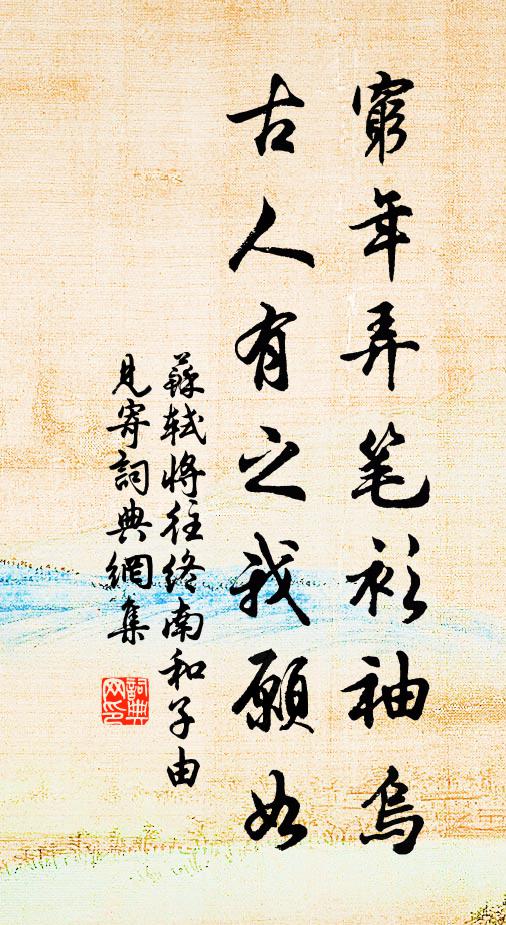 窮年弄笔衫袖烏
古人有之我願如
蘇軾將往終南和子由
見寄詞典網集
詞典
网印